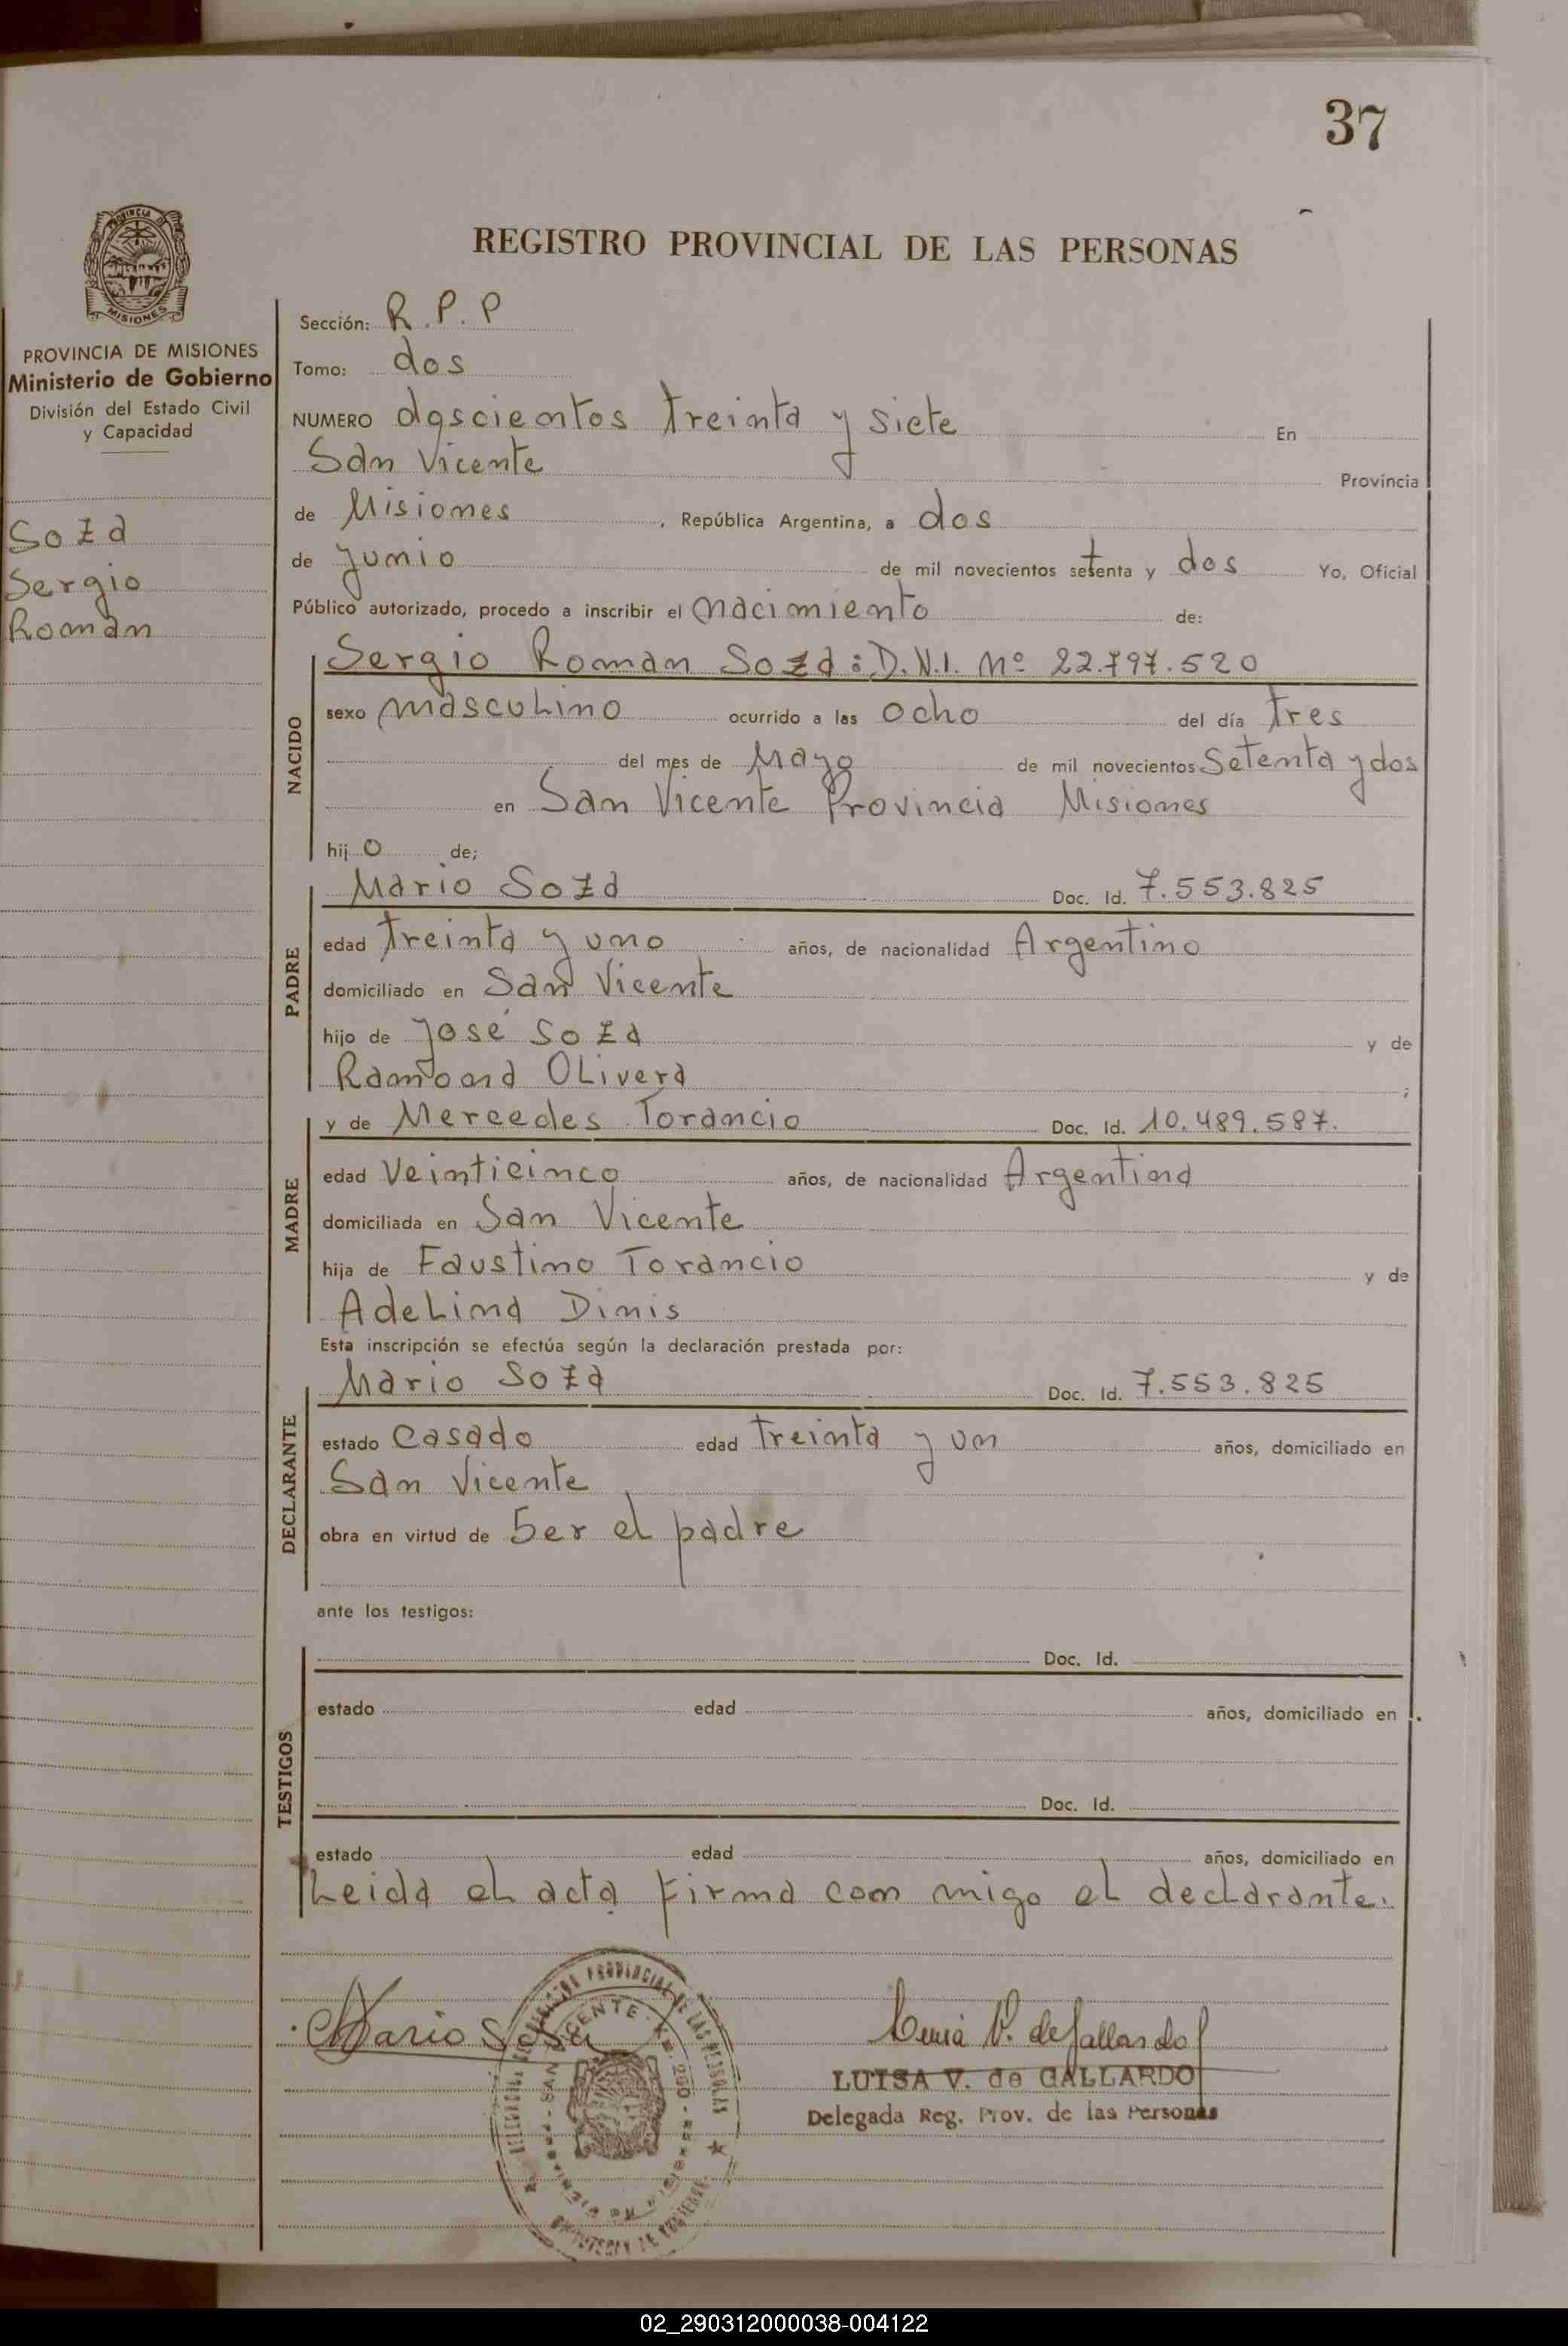 37
REGISTRO PROVINCIAL DE LAS PERSONAS
PROVINCIA DE MISIONES
Ministerio de Gobierno
División del Estado Civil
y Capacidad
Soza
Sergio
Roman
Sección: R.P.P
Tomo: dos
NUMERO doscientos treinta y siete En
San Vicente Provincia
de Misiones, República Argentina, a dos
de Junio de mil novecientos setenta y dos Yo, Oficial
Público autorizado, procedo a inscribir el nacimiento de:
NACIDO
Sergio Roman Soza: D.N.I. Nº 22.797.520
sexo masculino ocurrido a las ocho del día tres
del mes de Mayo de mil novecientos Setenta y dos
en San Vicente Provincia Misiones
hijo de;
PADRE
Mario Soza Doc. Id. 7.553.825
edad treinta y uno años, de nacionalidad Argentino
domiciliado en San Vicente
hijo de José Soza y de
Ramona Olivera;
MADRE
y de Mercedes Torancio Doc. Id. 10.489.587.
edad Veinticinco años, de nacionalidad Argentina
domiciliada en San Vicente
hija de Faustino Torancio y de
Adelina Dinis
Esta inscripción se efectúa según la declaración prestada por:
DECLARANTE
Mario Soza Doc. Id. 7.553.825
estado Casado edad treinta y un años, domiciliado en
San Vicente
obra en virtud de Ser el padre
ante los testigos:
TESTIGOS
Doc. Id.
estado edad años, domiciliado en
Doc. Id.
estado edad años, domiciliado en
Leida el acta firma con migo el declarante.
Mario Soza
Luisa V. de Gallardo
LUISA V. de GALLARDO
Delegada Reg. Prov. de las Personas
02_290312000038-004122